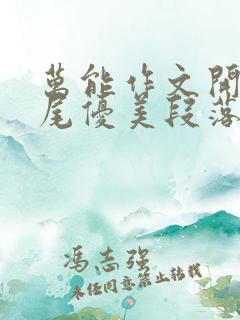 萬能作文開
尾優美段落
馮志强
未經同意禁止轉載